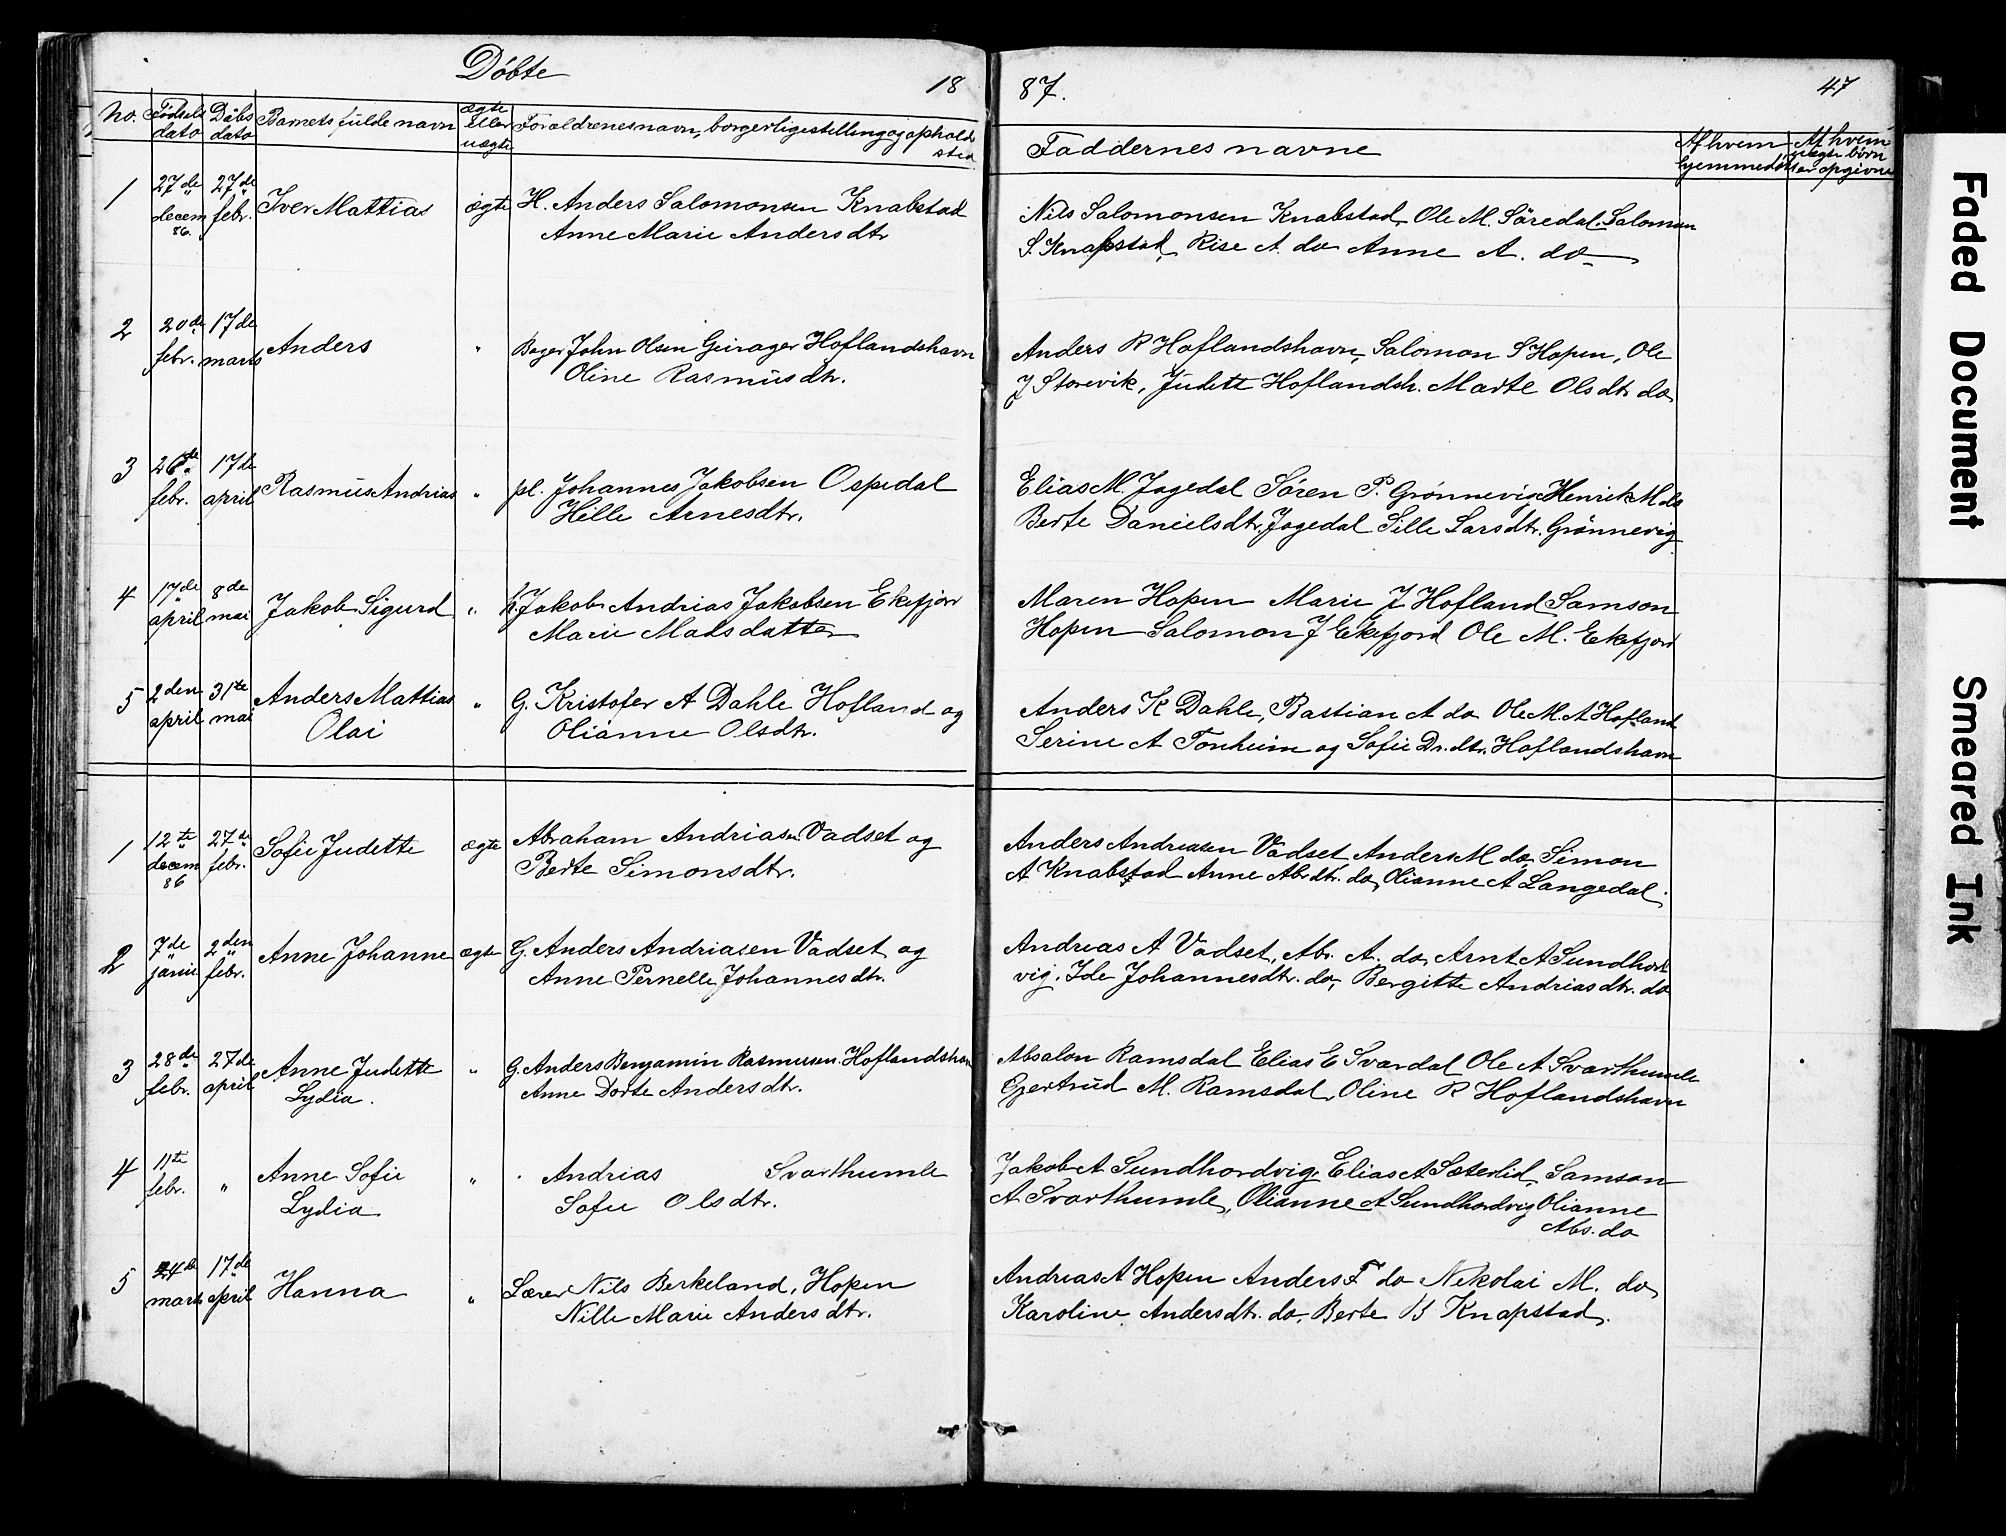 Döbte 18 87. 47
No. Fødsels dato Döbs dato Barnets fulde navn ægte eller uægte Foraldrenes navn, borgerlige stilling og opholds sted Faddernes navne Af hvem hjemmedøbt Af hvem uægte børn er opgivne
1 27de decem 86. 27de febr. Iver Mattias ägte H. Anders Salomonsen Knabstad
Anne Marie Andersdtr
Nils Salomonsen Knabstad, Ole M. Söredal. Salomon
S. Knapstad, Rise A. do Anne A. do
2 20de febr. 17de marts Anders " Bager John Olsen Geirager Hoflandshavn
Oline Rasmüsdtr.
Anders R Hoflandshavn, Salomon S Hopen, Ole
J Storevik, Judett Hoflandsh. Marte Olsdtr do
3 26de febr. 17de april Rasmüs Andrias " pl. Johannes Jakobsen Ospedal
Hille Arnesdtr.
Elias M. Jagedal Sören P. Grønnevig Henrik M do
Berte Danielsdtr. Jagedal Sille Larsdtr. Grönnevig
4 17de april 8de mai Jakob Sigurd " Jakob Andrias Jakobsen Ekefjor
Marie Madsdatter
Maren Hopen Marie J Hofland Samson
Hopen Salomon J Ekefjord Ole M. Ekefjord
5 2den april 31te mai Anders Mattias
Olai " G. Kristofer A Dahle Hofland og
Olianne Olsdtr.
Anders K Dahle, Bastian A do Ole M. A Hofland
Serine A Tonheim og Sofie Dr. dtr. Hoflandshavn
1 12te decem 86 27de febr. Sofie Judette ægte Abraham Andriasen Vadset og
Berte Simonsdtr.
Anders Andreasen Vadset Anders M do, Simon
A Knabstad Anne Abrdtr. do, Olianne A Langedal.
2 7de janii 2den febr. Anne Johanne ægte G. Anders Andriasen Vadset og
Anne Pernelle Johannesdtr.
Andreas A Vadset, Abr. A. do, Arnt A Sundhord
vig. Ide Johannesdtr. do, Bergitte Andriasdtr. do
3 28de febr. 27de april Anne Judette
Lydia. " G. Anders Benjamin Rasmussen. Hoflandshavn
Anne Dorte Andersdtr.
Absalon Ramsdal Elias E Svardal Ole A Svarthumle
Gjertrud M. Ramsdal, Oline R Hoflandshavn
4 11te febr. " Anne Sofie
Lydia " Andrias Svarthumle
Sofie Olsdtr.
Jakob A Sundhordvig, Elias A Sæterlid, Samson
A Svarthumle, Olianne A Sundhordvig Olianne
Abs. do
5 24de marts 17de april Hanna " Lærer Nils Berkeland, Hopen
Nille Marie Andersdtr.
Andrias A Hopen Anders F do Nikolai M. do,
Karoline Andersdtr. do, Berte B Knapstad.
Faded Document
Smeared Ink